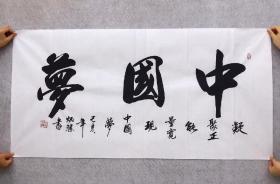 中國夢
凝聚正能量實現中國夢
己亥年
書